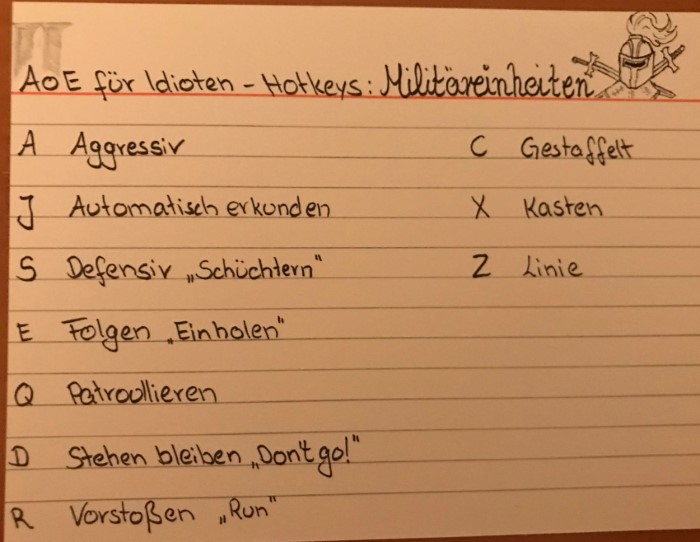 AoE für Idioten - Hotkeys: Militäreinheiten
A Aggressiv
J Automatisch erkunden
S Defensiv „Schüchtern"
E Folgen „Einholen"
Q Patroullieren
D Stehen bleiben „Don't go!"
R Vorstoßen „Run"
C Gestaffelt
X Kasten
Z Linie